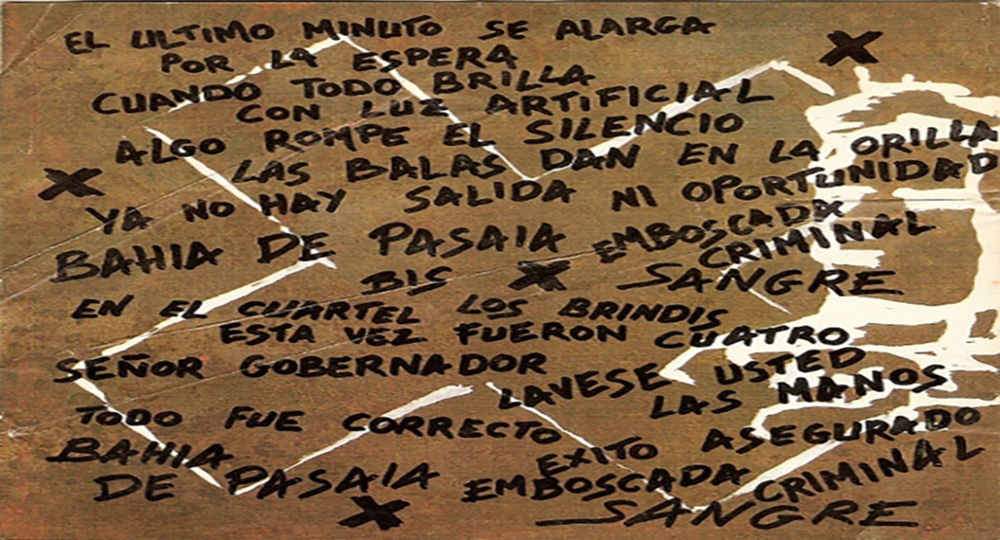 EL ULTIMO MINUTO SE ALARGA
POR LA ESPERA
CUANDO TODO BRILLA
CON LUZ ARTIFICIAL
ALGO ROMPE EL SILENCIO
LAS BALAS DAN EN LA ORILLA
YA NO HAY SALIDA NI OPORTUNIDAD
BAHIA DE PASAIA EMBOSCADA
CRIMINAL
BIS SANGRE
EN EL CUARTEL LOS BRINDIS
ESTA VEZ FUERON CUATRO
SEÑOR GOBERNADOR
LAVESE USTED
LAS MANOS
TODO FUE CORRECTO
EXITO ASEGURADO
BAHIA
DE PASAIA EMBOSCADA CRIMINAL
SANGRE